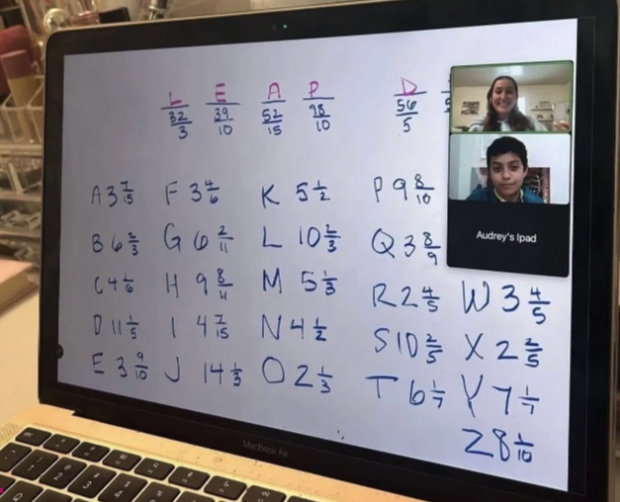 L E A P D
32/3 39/10 52/15 98/10 56/5
A 3 7/15 F 3 4/6 K 5 1/2 P 9 8/10
B 6 2/3 G 6 2/11 L 10 2/3 Q 3 8/9
C 4 1/6 H 9 8/11 M 5 1/3 R 2 4/5 W 3 4/5
D 11 1/5 I 4 7/15 N 4 1/2 S 10 2/5 X 2 2/5
E 3 9/10 J 14 1/3 O 2 1/3 T 6 1/7 Y 7 1/7
Z 8 1/10
Audrey's Ipad
MacBook Air